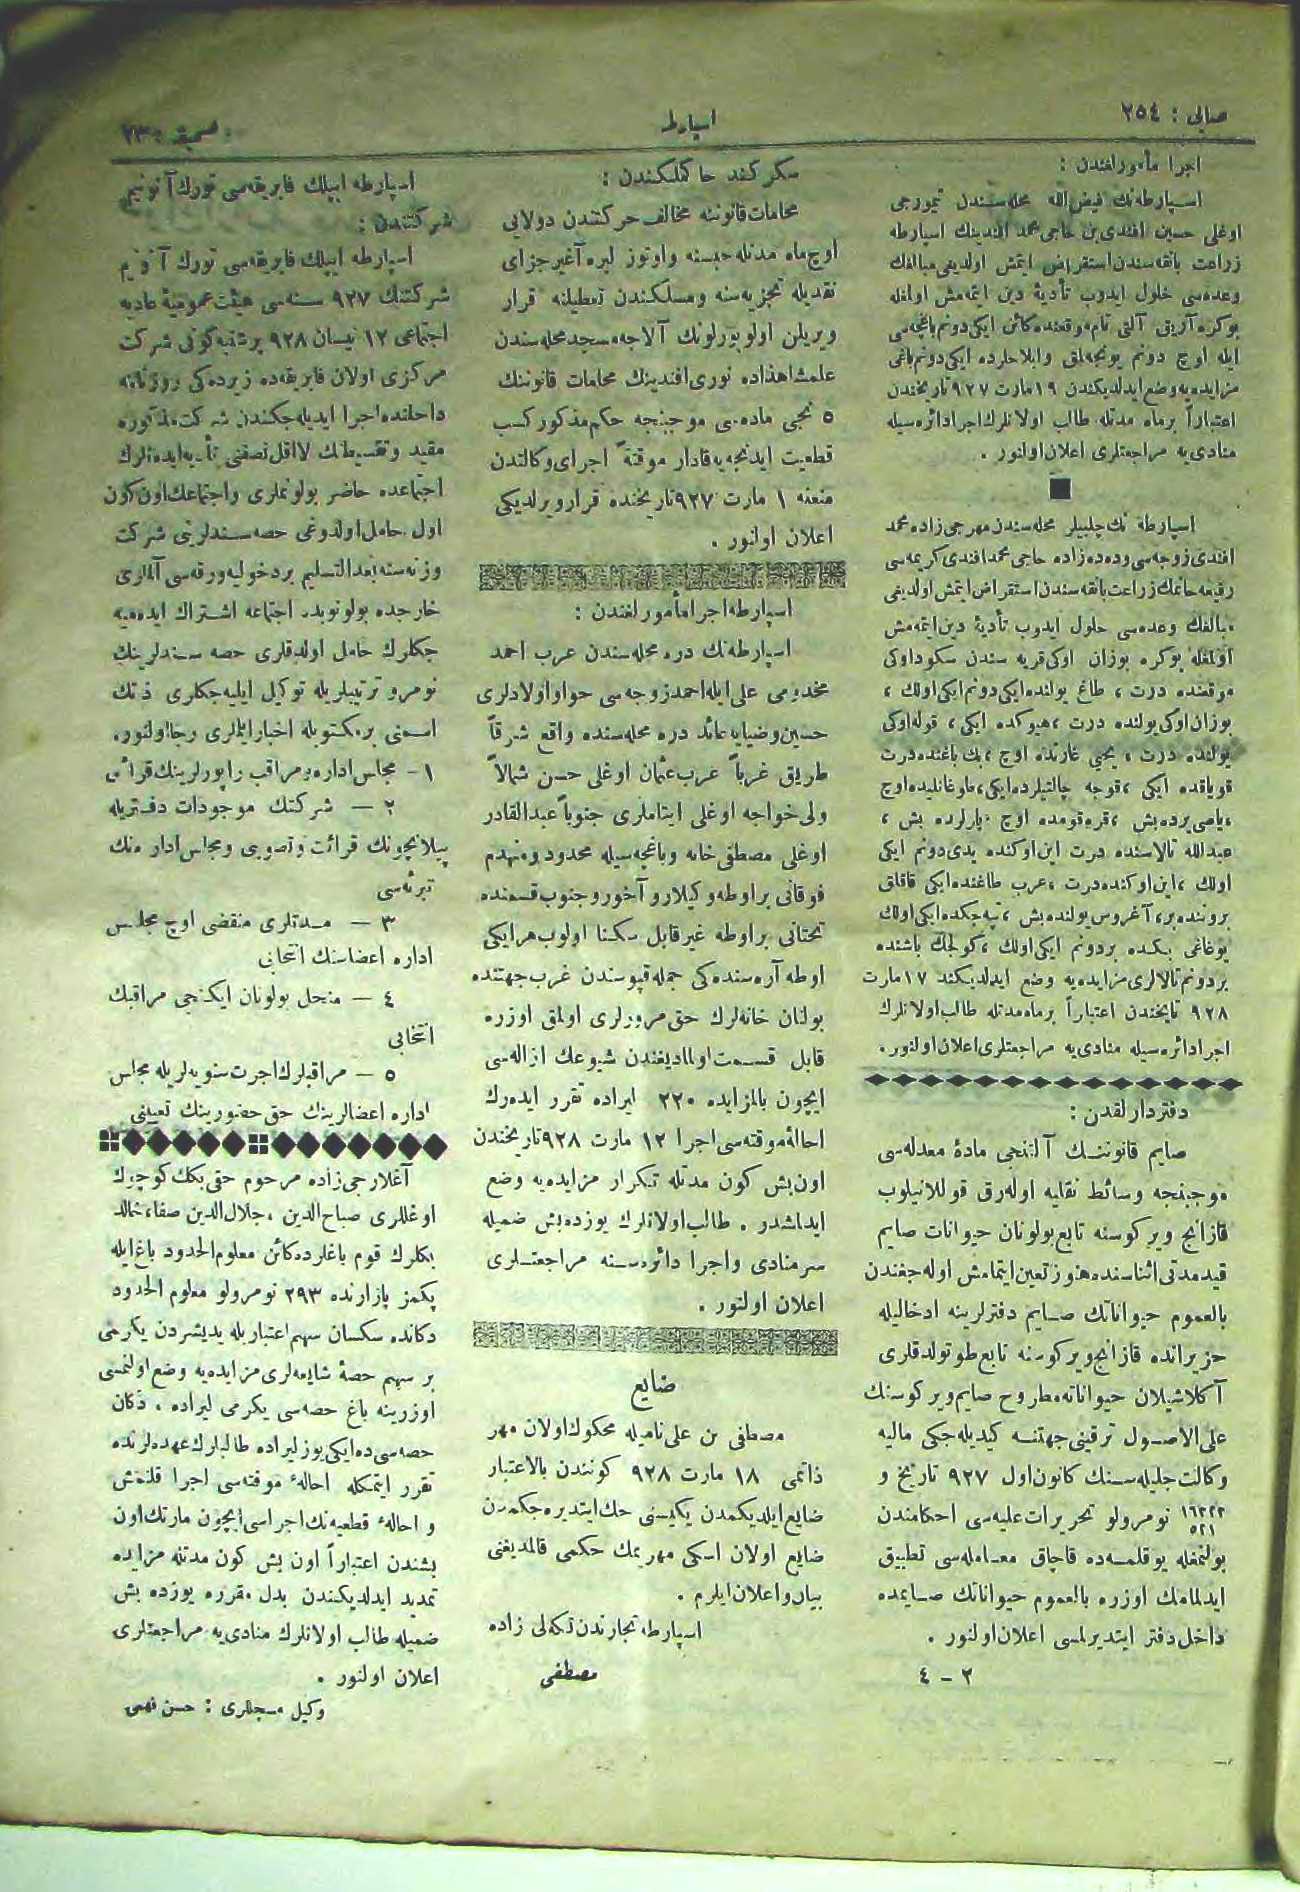 صایی : ٢٥٤
اسپارطه
صحیفه : ٢٣
اجرا مأمورلغندن :
اسپارطه‌نك فیض‌الله محله‌سندن تیمورجی
اوغلی حسین افندی بن حاجی محمد افندینك اسپارطه
زراعت بانقه‌سندن استقراض ایتمش اولدیغی مبالغك
وعده‌سی حلول ایدوب تأدیهٔ دین ایتمه‌مش اولمغله
بوكره آریق آلتی نام موقعنده كائن ایكی دونم باغچه‌سی
ایله اوچ دونم یونجه‌لق وابلا حلرده ایكی دونم باغی
مزایده‌یه وضع ایدلدیكندن ١٩ مارت ٩٢٧ تاریخندن
اعتباراً برماه مدتله طالب اولانلرك اجرا دائره‌سیله
منادی‌یه مراجعتلری اعلان اولنور .
اسپارطه نك چلبیلر محله‌سندن مهرجی زاده محمد
افندی زوجه‌سی وده‌ده زاده حاجی محمد افندی كریمه‌سی
رفیعه خانمك زراعت بانقه‌سندن استقراض ایتمش اولدیغی
مبالغك وعده‌سی حلول ایدوب تأدیهٔ دین ایتمه‌مش
اولمغله بوكره بوزان اوكی قریه سندن سكود اوكی
موقعنده درت ، طاغ یولنده ایكی دونم ایكی اولك ،
بوزان اوكی یولنده درت ، هیوكده ایكی ، قوله اوكی
یولنده درت ، یحیی غارنده اوچ ، بك باغنده درت
قویاقده ایكی ، قوجه چالتیلرده ایكی ، ماوغانلیده اوچ
، یاصی یرده بش ، قره قومده اوچ ، پارلرده بش ،
عبدالله تالاسنده درت این اوكنده یدی دونم ایكی
اولك ، این اوكنده درت ، عرب طاغنده ایكی قاقلق
بروننده بر، آغروس یولنده بش ، تپه‌جكده ایكی اولك
یوغاغی بكده بر دونم ایكی اولك ، كولجك باشنده
بر دونم تالالری مزایده‌یه وضع ایدلدیكند ١٧ مارت
٩٢٨ تایخندن اعتباراً برماه مدتله طالب اولانلرك
اجرا دائره سیله منادی‌یه مراجعتلری اعلان اولنور .
دفتردارلقدن :
صایم قانوننـك آلتنجی مادهٔ معدله‌سی
موجبنجه وسائط نقلیه اوله‌رق قوللانیلوب
قازانج ویركوسنه تابع بولونان حیوانات صایم
قید مدتی اثناسنده هنوز تعین ایتمامش اوله‌جغندن
بالعموم حیواناتك صـایم دفترلرینه ادخالیله
حزیرانده قازانج ویركوسنه تابع طوتولدقلری
آكلاشیلان حیواناته مطروح صایم ویركوسنك
علی‌الاصـول ترقینی جهتنـه كیدیله‌جكی مالیه
وكالت جلیله‌سـنك كانون اول ٩٢٧ تاریخ و
١٦٢٢٢ / ٥٢١ نومرولو تحریرات علیه‌سی احكامندن
بولنمغله یوقلمـه‌ده قاچاق معـامله‌سی تطبیق
ایدلمامك اوزره بالعموم حیواناتك صـایمده
داخل دفتر ایتدیرلمسی اعلان اولنور .
٢ - ٤
سكركند حاكملكندن :
محامات قانوننه مخالف حركتندن دولایی
اوچ ماه مدتله حبسنه و اوتوز لیره آغیر جزای
نقدیله تجزیه‌سنه ومسلكندن تعطیلنه قرار
ویریلن اولوبورلونك آلاجه مسجد محله‌سندن
علمشاهذاده نوری افندینك محامات قانوننك
٥ نجی ماده‌سی موجبنجه حكم مذكور كسب
قطعیت ایدنجه‌یه قادار موقتهً اجرای وكالتدن
منعنه ١ مارت ٩٢٧ تاریخنده قرار ویرلدیكی
اعلان اولنور .
اسپارطه اجرا مأمورلغندن :
اسپارطه‌نك دره محله‌سندن عرب احمد
مخدومی علی ایله احمد زوجه‌سی حوا و اولادلری
حسین وضیایه عائد دره محله‌سنده واقع شرقاً
طریق غرباً عرب عثمان اوغلی حسن شمالاً
ولی خواجه اوغلی ایتاملری جنوباً عبدالقادر
اوغلی مصطفی خانه وباغچه‌سیله محدود و منهدم
فوقانی براوطه وكیلار و آخور و جنوب قسمنده
تحتانی براوطه غیر قابل سكنا اولوب هر ایكی
اوطه آره‌سنده‌كی جمله قپوسندن غرب جهتنده
بولنان خانه‌لرك حق مرورلری اولمق اوزره
قابل قسـمت اولمادیغندن شیوعك ازاله‌سی
ایچون بالمزایده ٢٢٠ لیراده تقرر ایده‌رك
احالهٔ موقته‌سی اجرا ١٢ مارت ٩٢٨ تاریخندن
اون بش كون مدتله تكرار مزایده‌یه وضع
ایدلشدر . طالب اولانلرك یوزده بش ضمیله
سرمنادی واجرا دائره‌سـنه مراجعتـلری
اعلان اولنور .
ضایع
مصطفی بن علی نامیله محكوك اولان مهر
ذاتمی ١٨ مارت ٩٢٨ كونندن بالاعتبار
ضایع ایلدیكمدن یكیسنی حك ایتدیره‌جكمدن
ضایع اولان اسكی مهریمك حكمی قالمدیغنی
بیان و اعلان ایلرم .
اسپارطه تجارندن تكه‌لی زاده
مصطفی
اسپارطه ایپلك فابریقه‌سی تورك آنونیم
شركتندن :
اسپارطه ایپلك فابریقه‌سی تورك آنونیم
شركتنك ٩٢٧ سنه‌سی هیئت عمومیهٔ عادیه
اجتماعی ١٢ نیسان ٩٢٨ پرشنبه كونی شركت
مركزی اولان فابریقه‌ده زیرده‌كی روزنامه
داخلنده اجرا ایدیله‌جكندن شركت مذكوره
مقید و تقسیطاتك لااقل نصفنی تأدیه ایده‌نلرك
اجتماعده حاضر بولونملری و اجتماعك اون كون
اول حامل اولدوغی حصه سـندلرینی شركت
وزنه‌سنه بعد التسلیم بر دخولیه ورقه‌سی آلملری
خارجده بولونوبده اجتماعه اشـتراك ایده‌میه
جكلرك حامل اولدقلری حصه سـندلرینك
نومرو ترتیبلریله توكیل ایلیه‌جكلری ذاتك
اسـمنی بر مكتوبله اخبار ایتملری رجا اولنور.
١- مجلس اداره و مراقب راپورلرینك قرائتی
٢ — شركتك موجودات دفتریله
پیلانچونك قرائت و تصویبی ومجلس اداره‌نك
تبرئه‌سی
٣ — مـدتلری منقضی اوچ مجلس
اداره اعضاسنك انتخابی
٤ — منحل بولونان ایكنجی مراقبك
انتخابی
٥ — مراقبلرك اجرت سنویه‌لریله مجلس
اداره اعضالرینك حق حضورینك تعیینی
آغلارجی زاده مرحوم حقی بكك كوچوك
اوغللری صباح الدین ، جلال الدین صفا، خالد
بكلرك قوم باغلرده كائن معلوم‌الحدود باغ ایله
پكمز پازارنده ٢٩٣ نومرولو معلوم الحدود
دكانده سكسان سهم اعتباریله یدیشردن یكرمی
بر سهم حصهٔ شایعه‌لری مزایده‌یه وضع اولنمسی
اوزرینه باغ حصه‌سی یكرمی لیراده ، دكان
حصه‌سی ده ایكی یوز لیراده طالبلرك عهده‌لرنده
تقرر ایتمكله احالهٔ موقته‌سی اجرا قلنمش
و احالهٔ قطعیه‌نك اجراسی ایچون مارتك اون
بشندن اعتباراً اون بش كون مدتله مزایده
تمدید ایدلدیكندن بدل مقرره یوزده بش
ضمیله طالب اولانلرك منادی‌یه مراجعتلری
اعلان اولنور .
وكیل مسجللری : حسن فهمی